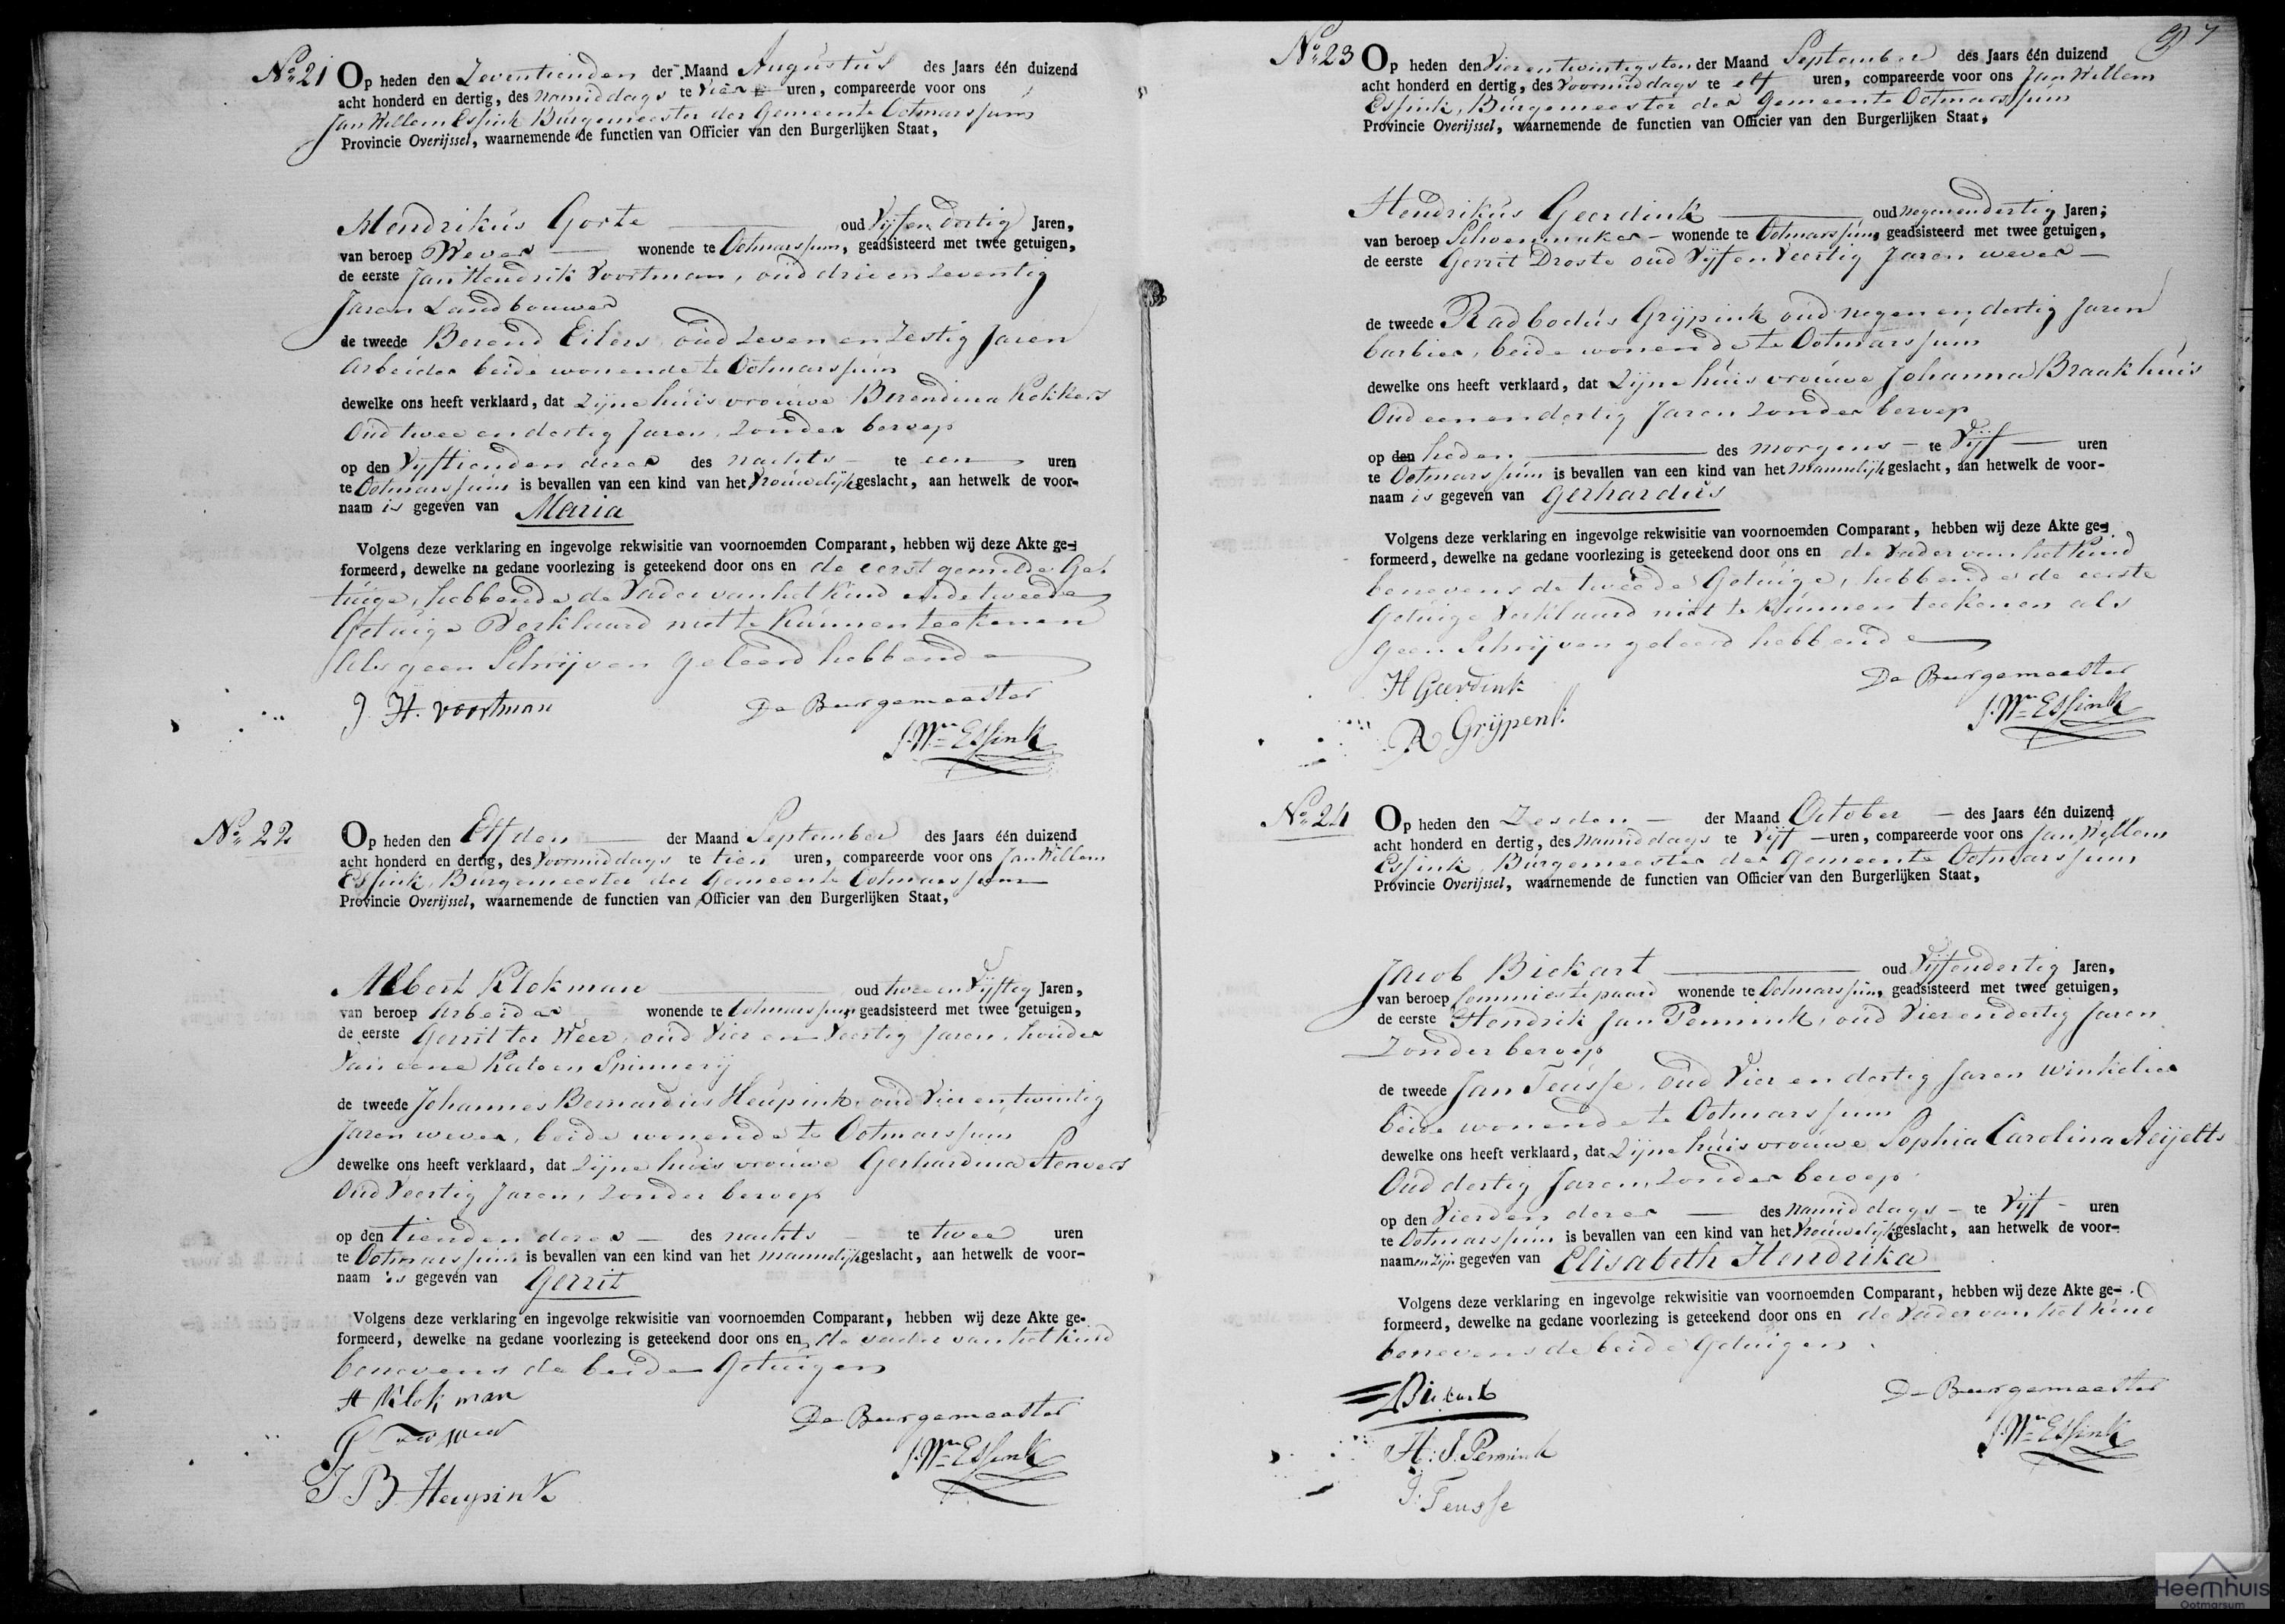 No. 21 Op heden den Zeventienden der Maand Augustus des Jaars één duizend
acht honderd en dertig, des namiddags te vier uren, compareerde voor ons
Jan Willem Essink Burgemeester der Gemeente Ootmarssum
Provincie Overijssel, waarnemende de functien van Officier van den Burgerlijken Staat,
Hendrikus Gorte oud Vijf en dertig Jaren,
van beroep Wever wonende te Ootmarssum, geadsisteerd met twee getuigen,
de eerste Jan Hendrik Voortman, oud drie en Zeventig
Jaren Landbouwer
de tweede Berend Eilers oud Zeven en Zestig Jaren
Arbeider beide wonende te Ootmarssum
dewelke ons heeft verklaard, dat Zijne huisvrouwe Berendina Kokkers
Oud twee en dertig Jaren, Zonder beroep
op den Vijftienden dezer des nachts te een uren
te Ootmarssum is bevallen van een kind van het Vrouwelijk geslacht, aan hetwelk de voor-
naam is gegeven van Maria
Volgens deze verklaring en ingevolge rekwisitie van voornoemden Comparant, hebben wij deze Akte ge-
formeerd, dewelke na gedane voorlezing is geteekend door ons en de eerst gemelde Ge-
tuige, hebbende de Vader van het Kind en de tweede
Getuige Verklaard niet te Kunnen teekenen
als geen Schrijven geleerd hebbende
J. H. voortman De Burgemeester
J. Wm Essink
No. 22 Op heden den Elfden der Maand September des Jaars één duizend
acht honderd en dertig, des Voormiddags te tien uren, compareerde voor ons Jan Willem
Essink, Burgemeester der Gemeente Ootmarssum
Provincie Overijssel, waarnemende de functien van Officier van den Burgerlijken Staat,
Albert Klokman oud twee en Vijftig Jaren,
van beroep Arbeider wonende te Ootmarssum geadsisteerd met twee getuigen,
de eerste Gerrit ter Weer, oud Vier en Veertig Jaren, houder
van eene Katoen Spinnerij
de tweede Johannes Bernardus Heupink oud Vier en twintig
Jaren wever, beide wonende te Ootmarssum
dewelke ons heeft verklaard, dat Zijne huisvrouwe Gerhardina Stenvers
Oud Veertig Jaren, Zonder beroep
op den tienden dezes des nachts te twee uren
te Ootmarssum is bevallen van een kind van het mannelijk geslacht, aan hetwelk de voor-
naam is gegeven van Gerrit
Volgens deze verklaring en ingevolge rekwisitie van voornoemden Comparant, hebben wij deze Akte ge-
formeerd, dewelke na gedane voorlezing is geteekend door ons en de vader van het Kind
benevens de beide Getuigen
A Klokman
De Burgemeester
G ter weer
J. Wm Essink
J B Heupink
97
No. 23 Op heden den Vierentwintigsten der Maand September des Jaars één duizend
acht honderd en dertig, des Voormiddags te elf uren, compareerde voor ons Jan Willem
Essink, Burgemeester der Gemeente Ootmarssum
Provincie Overijssel, waarnemende de functien van Officier van den Burgerlijken Staat,
Hendrikus Geerdink oud negenendertig Jaren;
van beroep Schoenmaker wonende te Ootmarssum, geadsisteerd met twee getuigen,
de eerste Gerrit Droste oud Vijf en Veertig Jaren wever
de tweede Radbodus Grijpink oud negen en dertig Jaren
barbier, beide wonende te Ootmarssum
dewelke ons heeft verklaard, dat Zijne huisvrouwe Johanna Braakhuis
Oud eenendertig Jaren Zonder beroep
op den heden des morgens te Vijf uren
te Ootmarssum is bevallen van een kind van het mannelijk geslacht, aan hetwelk de voor-
naam is gegeven van Gerhardus
Volgens deze verklaring en ingevolge rekwisitie van voornoemden Comparant, hebben wij deze Akte ge-
formeerd, dewelke na gedane voorlezing is geteekend door ons en de Vader van het Kind
benevens de tweede Getuige, hebbende de eerste
Getuige Verklaard niet te Kunnen teekenen als
geen Schrijven geleerd hebbende
H Geerdink De Burgemeester
J. Wm Essink
R Grijpenk
No. 24 Op heden den Zesden der Maand October des Jaars één duizend
acht honderd en dertig, des Namiddags te Vijf uren, compareerde voor ons Jan Willem
Essink, Burgemeester der Gemeente Ootmarssum
Provincie Overijssel, waarnemende de functien van Officier van den Burgerlijken Staat,
Jacob Bickart oud Vijfendertig Jaren,
van beroep Commies te paard wonende te Ootmarssum, geadsisteerd met twee getuigen,
de eerste Hendrik Jan Pennink, oud Vierendertig Jaren
Zonder beroep
de tweede Jan Teusse, oud Vier en dertig Jaren Winkelier
beide wonende te Ootmarssum
dewelke ons heeft verklaard, dat Zijne huisvrouwe Sophia Carolina
Oud dertig Jaren Zonder beroep
op den Vierden dezer des namiddags te Vijf uren
te Ootmarssum is bevallen van een kind van het Vrouwelijk geslacht, aan hetwelk de voor-
naam en zijn gegeven van Elisabeth Hendrika
Volgens deze verklaring en ingevolge rekwisitie van voornoemden Comparant, hebben wij deze Akte ge-
formeerd, dewelke na gedane voorlezing is geteekend door ons en de Vader van het Kind
benevens de beide Getuigen
Bickart De Burgemeester
H: J. Pennink J. Wm Essink
J: Teusse
Heemhuis
Ootmarsum